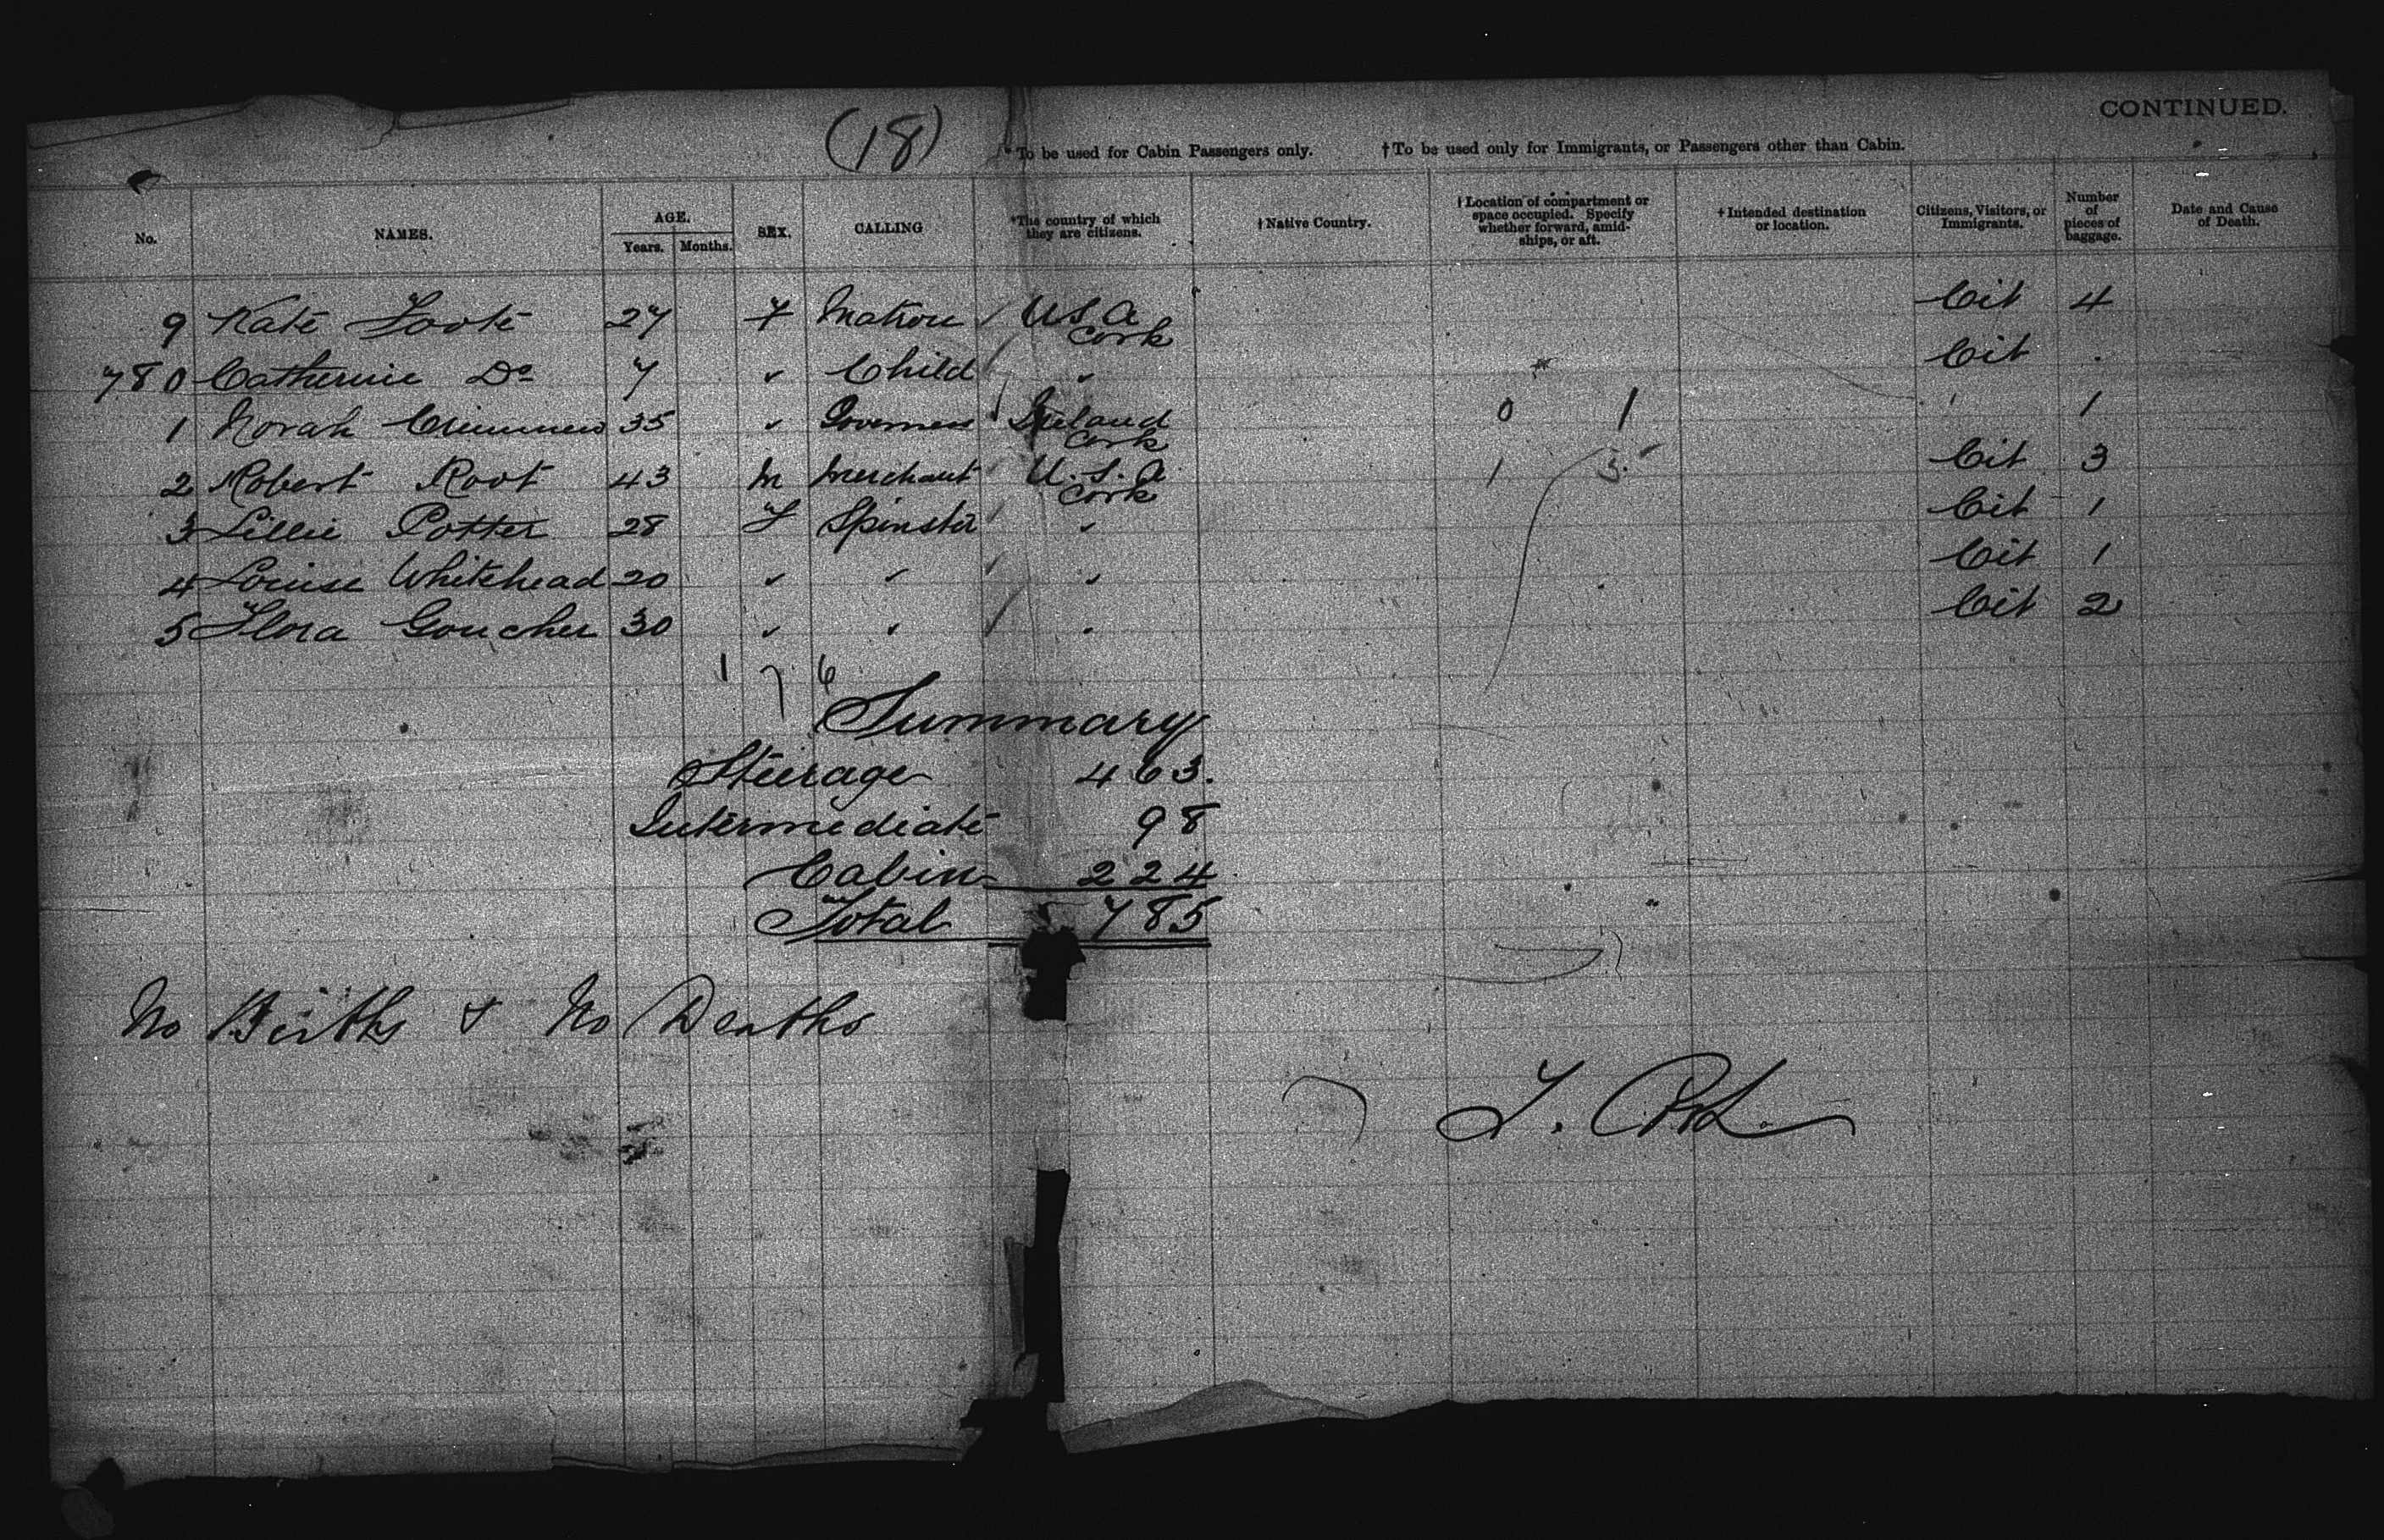 (18)
CONTINUED.
*To be used for Cabin Passengers only. †To be used only for Immigrants, or Passengers other than Cabin.
No. NAMES. AGE. Years. Months. SEX. CALLING *The country of which they are citizens. †Native Country. †Location of compartment or space occupied. Specify whether forward, amidships, or aft. †Intended destination or location. Citizens, Visitors, or Immigrants. Number of pieces of baggage. Date and Cause of Death.
9 Kate Foote 27 F Matron USA Cit 4
Cork
780 Catherine Do 7 " Child " Cit
1 Norah 35 " Governess Ireland 0 1 1
Cork
2 Robert Root 43 M Merchant U.S.A 1 3 Cit 3
Cork
3 Lillie Potter 28 F Spinster " Cit 1
4 Louise Whitehead 20 " " " Cit 1
5 Flora Goucher 30 " " " Cit 2
1 7 6
Summary
Steerage 463.
Intermediate 98
Cabin 224
Total 785
No Births & No Deaths